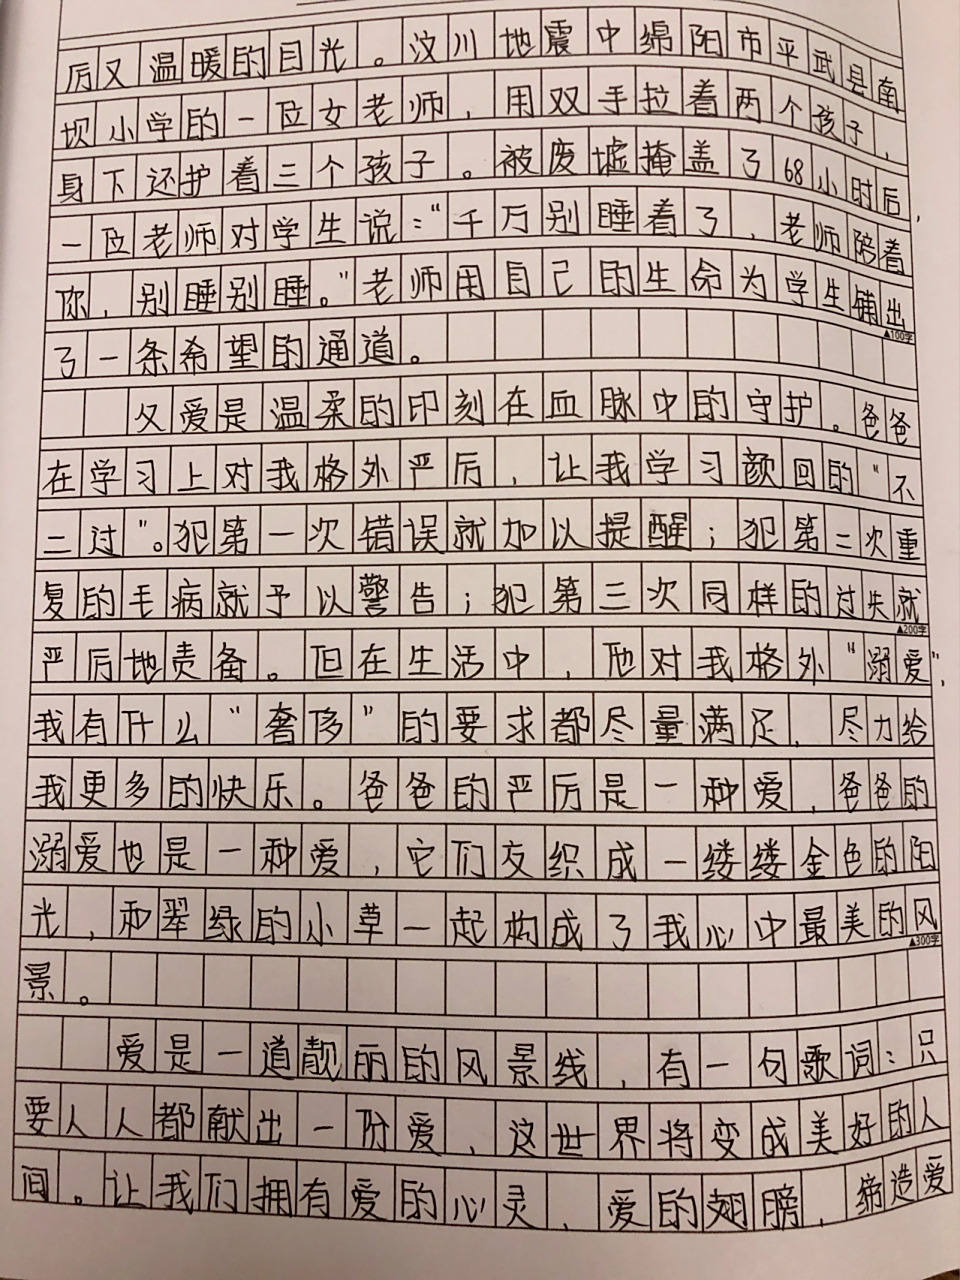 厉又温暖的目光。汶川地震中绵阳市平武县南
坝小学的一位女老师，用双手拉着两个孩子，
身下还护着三个孩子。被废墟掩盖了68小时后，
一位老师对学生说：“千万别睡着了，老师陪着
你，别睡别睡。”老师用自己的生命为学生铺出
▲100字
了一条希望的通道。
父爱是温柔的印刻在血脉中的守护。爸爸
在学习上对我格外严厉，让我学习颜回的“不
二过”。犯第一次错误就加以提醒；犯第二次重
复的毛病就予以警告；犯第三次同样的过失就
▲200字
严厉地责备。但在生活中，他对我格外“溺爱”，
我有什么“奢侈”的要求都尽量满足，尽力给
我更多的快乐。爸爸的严厉是一种爱，爸爸的
溺爱也是一种爱，它们交织成一缕缕金色的阳
光，和翠绿的小草一起构成了我心中最美的风
▲300字
景。
爱是一道靓丽的风景线，有一句歌词：只
要人人都献出一份爱，这世界将变成美好的人
间。让我们拥有爱的心灵，爱的翅膀，缔造爱